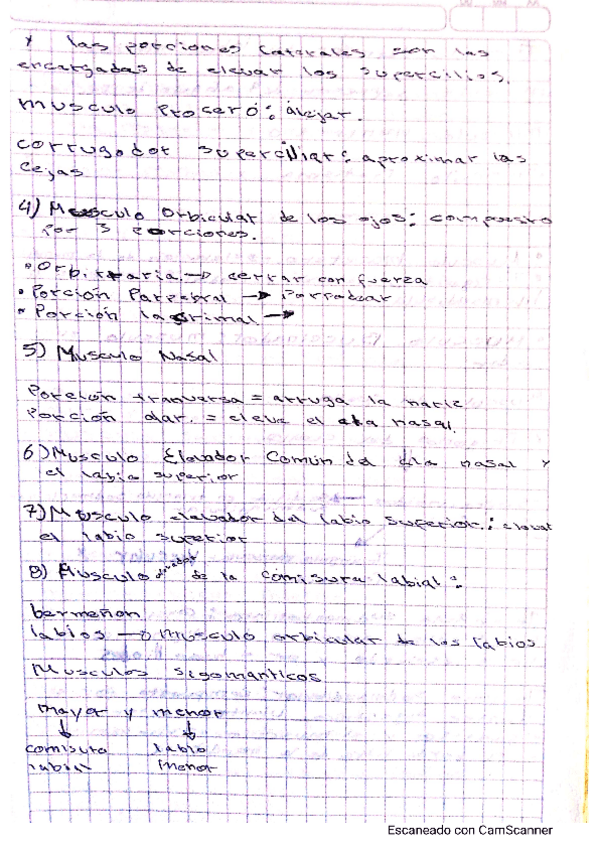 y las porciones laterales son las
encargadas de elevar los supercilios.
musculo Procero: alejar.
corrugador superciliar: aproximar las
cejas
4) Musculo Orbicular de los ojos: compuesto
por 3 porciones.
• Orbitaria → cerrar con fuerza
• Porción Parpebral → Parpadear
• Porción lagrimal →
5) Musculo Nasal
Porción tranversa = arruga la nariz
Porción alar. = eleva el ala nasal.
6) Musculo Elevador Común del ala nasal y
el labio superior
7) Musculo elevador del labio superior.: elevar
el labio superior
8) Musculo elevador de la comisura labial:
bermeñon
labios → musculo orbicular de los labios
Musculos sigomanticos
mayor y menor
↓ ↓
comisura labio
labial menor
Escaneado con CamScanner